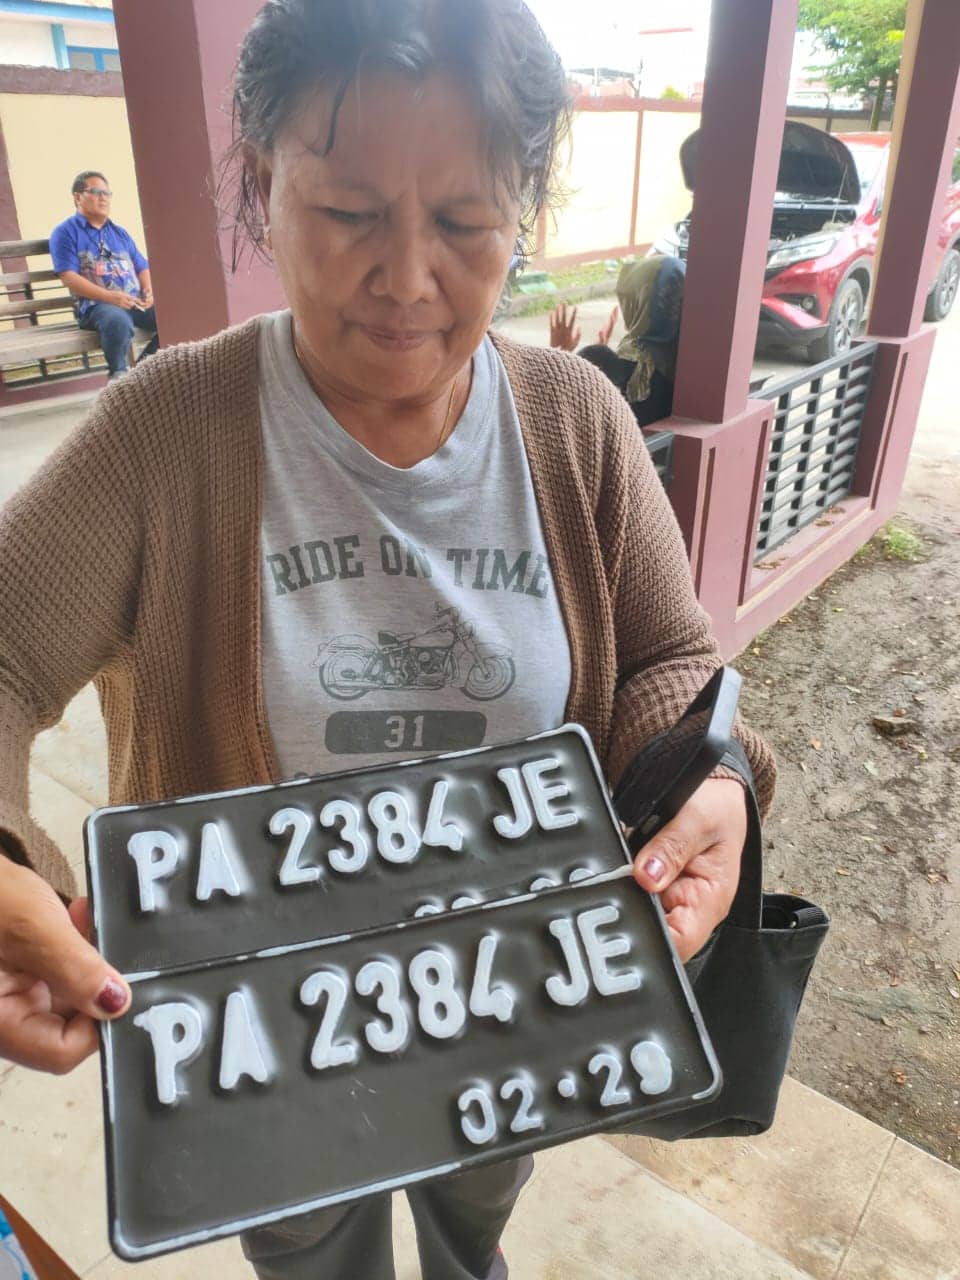 RIDE ON TIME
31
PA 2384 JE
PA 2384 JE
02·29